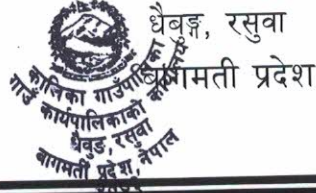 धैबुङ्ग, रसुवा
बागमती प्रदेश
कालिका गाउँपालिका
गाउँ कार्यपालिकाको कार्यालय
धैबुङ, रसुवा
बागमती प्रदेश, नेपाल